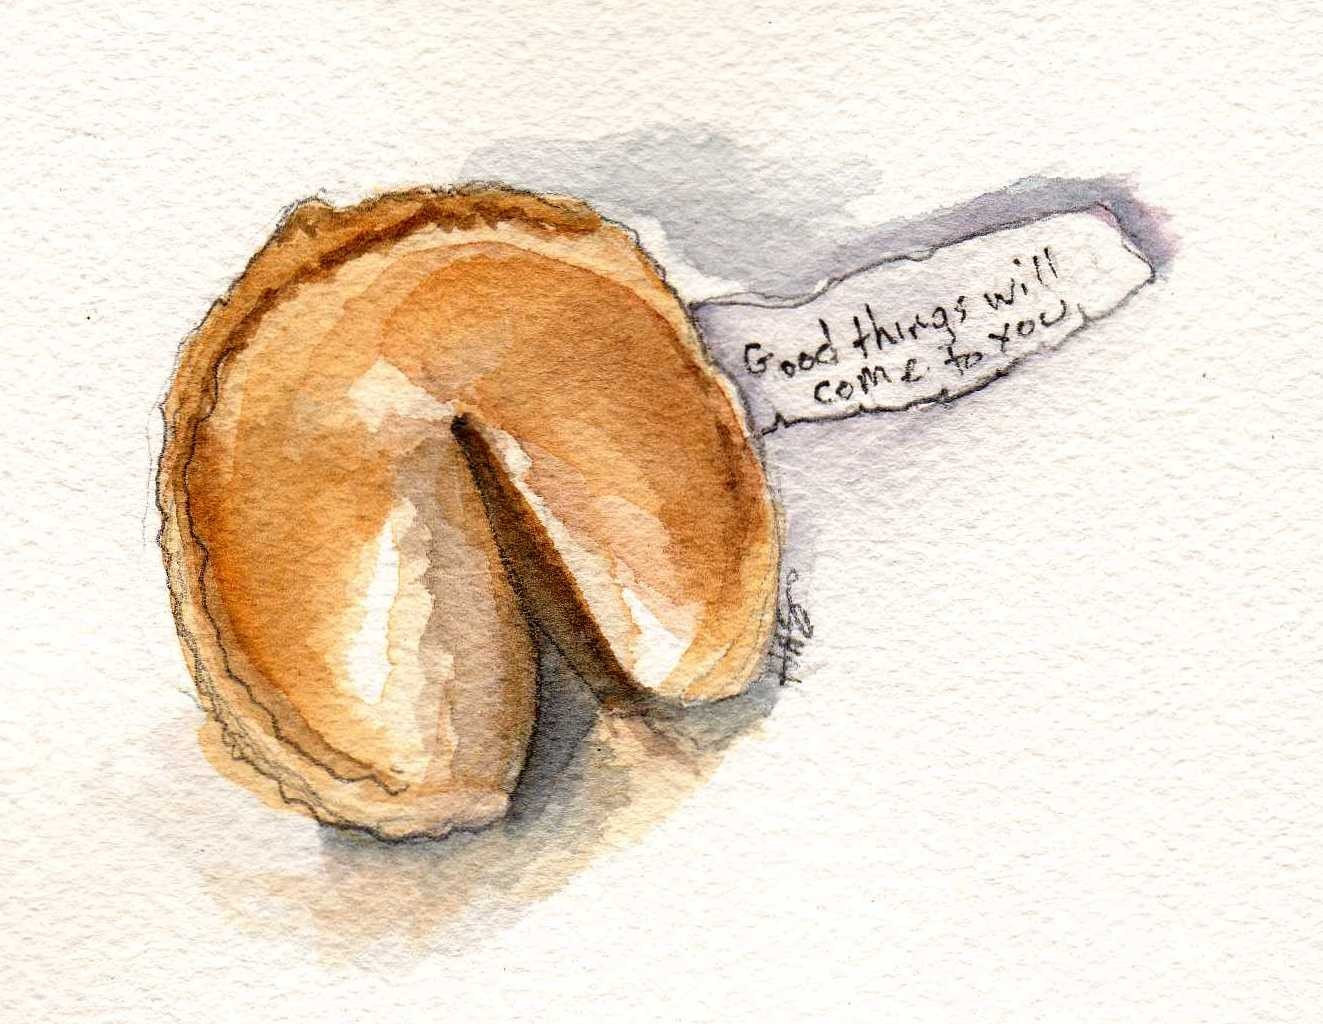 Good things will
come to you,